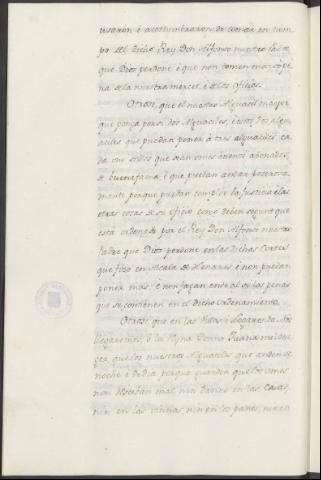 usaron è acostumbraron de usar en tiem
po del dicho Rey Don Alfonso nuestro Padre
que Dios perdone è que non tomen mas sope
na de la nuestra merced, è de los oficios.
Otrosi, que el nuestro Alguacil mayor
que ponga por si dos Alguaciles, è estos dos algua
ciles que puedan poner à tres alguaciles, ca
da uno dellos que sean omes buenos abonados,
de buena fama, è que puedan andar poderosa
mente porque puedan complir la Justicia è las
otras cosas de su oficio como deben segunt que
está ordenado por el Rey Don Alfonso nuestro
Padre que Dios perdone en las dichas Cortes
que fizo en Alcala de Henares è non puedan
poner mas: è non fagan ende al so las penas
que se contienen en el dicho Ordenamiento.
Otrosi: que en las Villas è Logares do Nos
llegaremos, ò la Reyna Donna Juana mi
que los nuestros Alguaciles que anden de
noche è de dia porque guarden que los omes
non resciban mal nin danno en las casas,
nin en las vinnas, nin en los panes, nin en